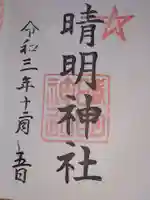 晴明神社
令和三年十二月二五日